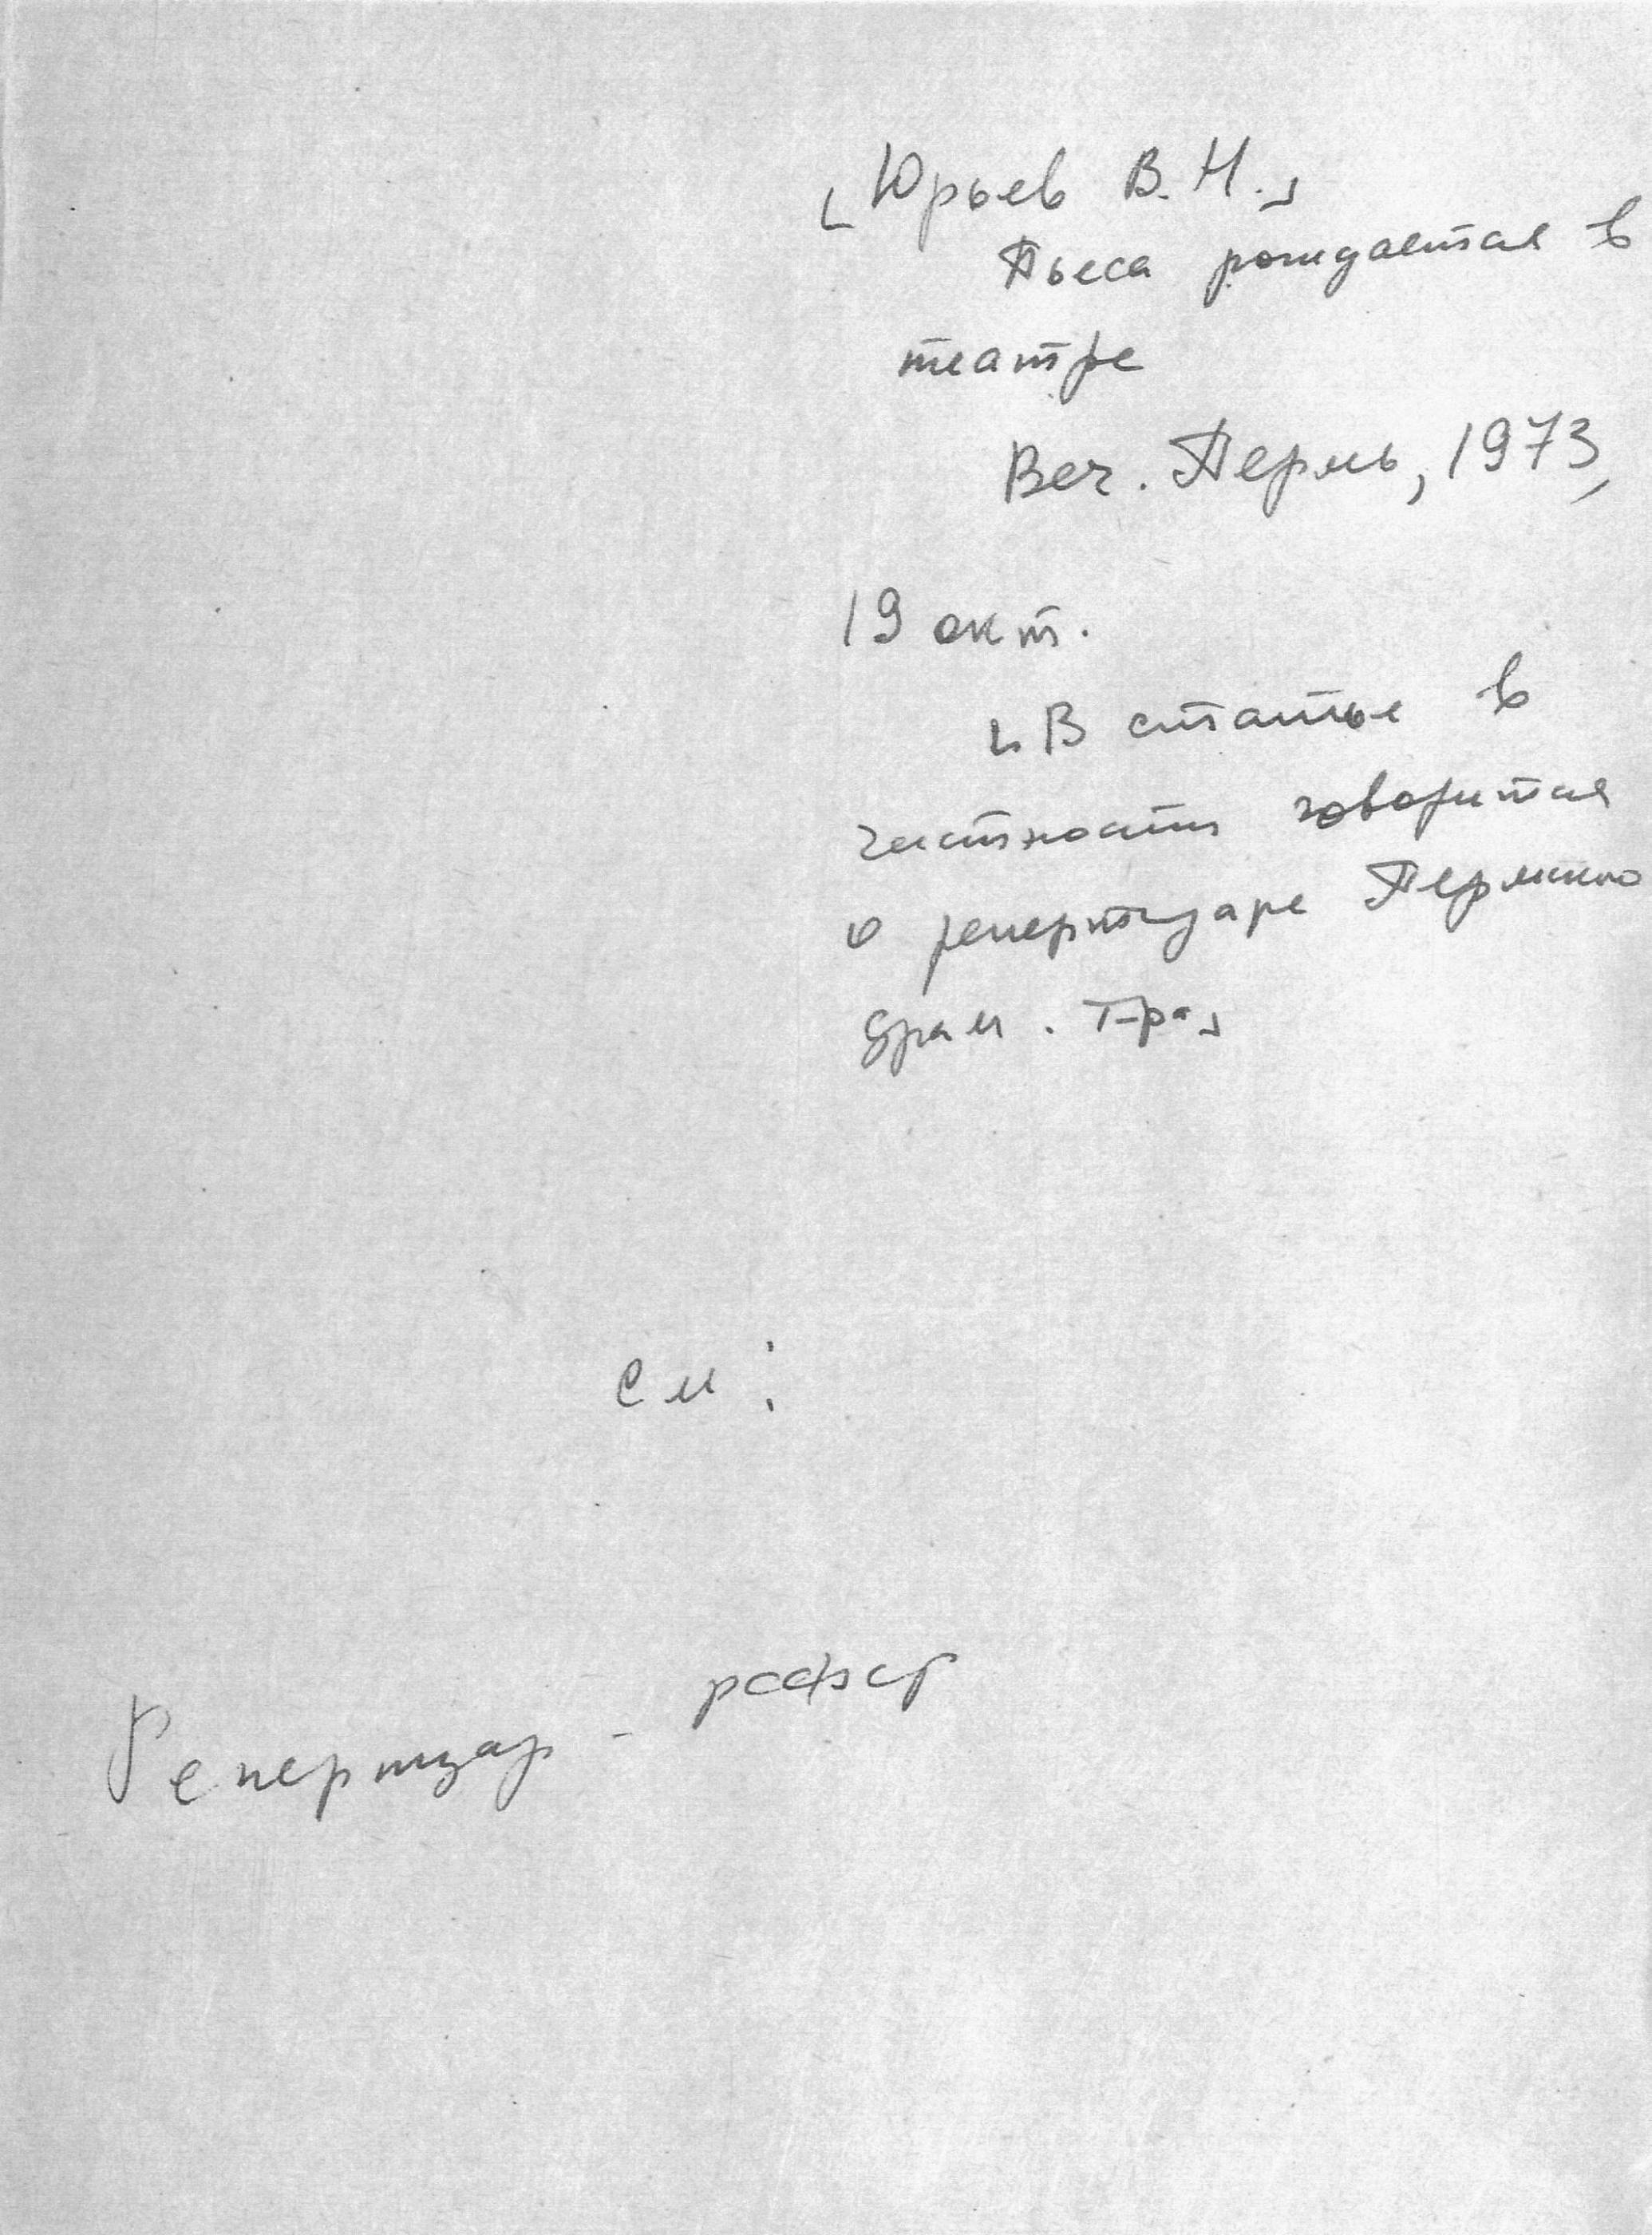 [Юрьев В.Н.]
Пьеса рождается в
театре
Веч. Пермь, 1973,
19 окт.
[В статье в
частности говорится
о репертуаре Пермского
драм. т-ра]
См:
Репертуар - РСФСР